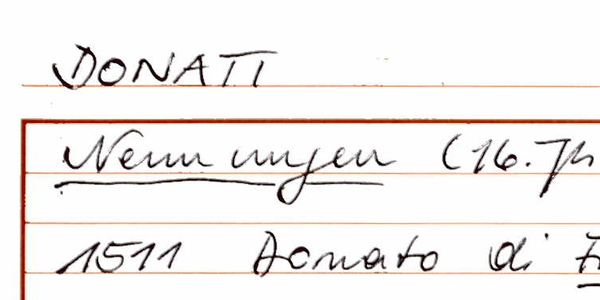 DONATI
Nennungen (16. Jh
1511 Donato di